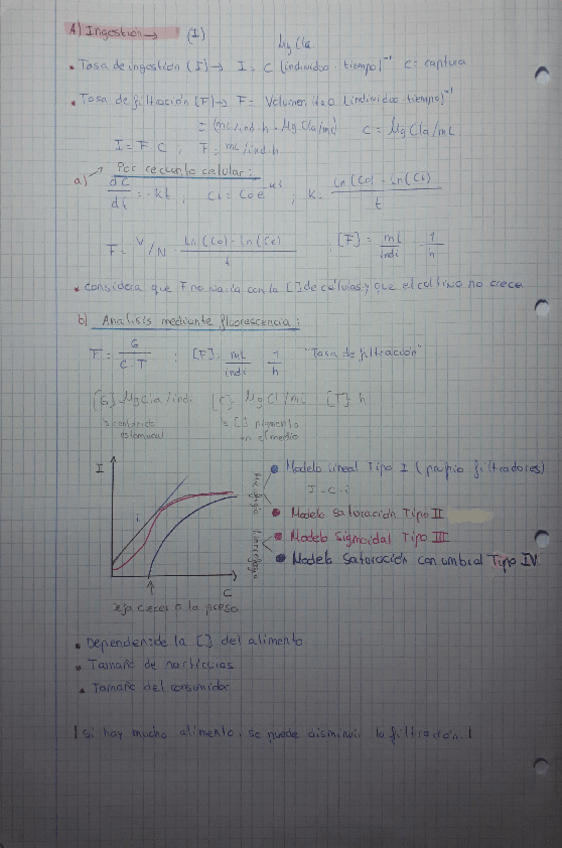 A) Ingestión → (I)
µg Cla
• Tasa de ingestión (I) → I = C (individuo · tiempo)⁻¹ C = captura
• Tasa de filtración (F) → F = Volumen H2O (individuo · tiempo)⁻¹
= (mL/ind·h · µg Cla/mL) C = µg Cla/mL
I = F · C ; F = mL/ind·h
a) Por recuento celular:
dC/dt = -kt ; Ct = C0 e^-kt ; k = (ln(C0) - ln(Ct))/t
F = V/N · (ln(C0) - ln(Ct))/t ; [F] = mL/indi · 1/h
• considera que F no varía con la [] de células y que el cultivo no crece
b) Análisis mediante fluorescencia:
F = G/(C·T) ; [F] = mL/indi · 1/h "Tasa de filtración"
[G] µg Cla/indi [C] µg Cl/mL [T] h
↳ contenido estomacal ↳ [] pigmento en el medio
I
i
C
Deja crecer a la presa
• Modelo lineal Tipo I (propio filtradores)
I = C · i
• Modelo saturación Tipo II
• Modelo sigmoidal Tipo III
• Modelo saturación con umbral Tipo IV
• Dependen de la [] del alimento
• Tamaño de partículas
• Tamaño del consumidor
! si hay mucho alimento, se puede disminuir la filtración !